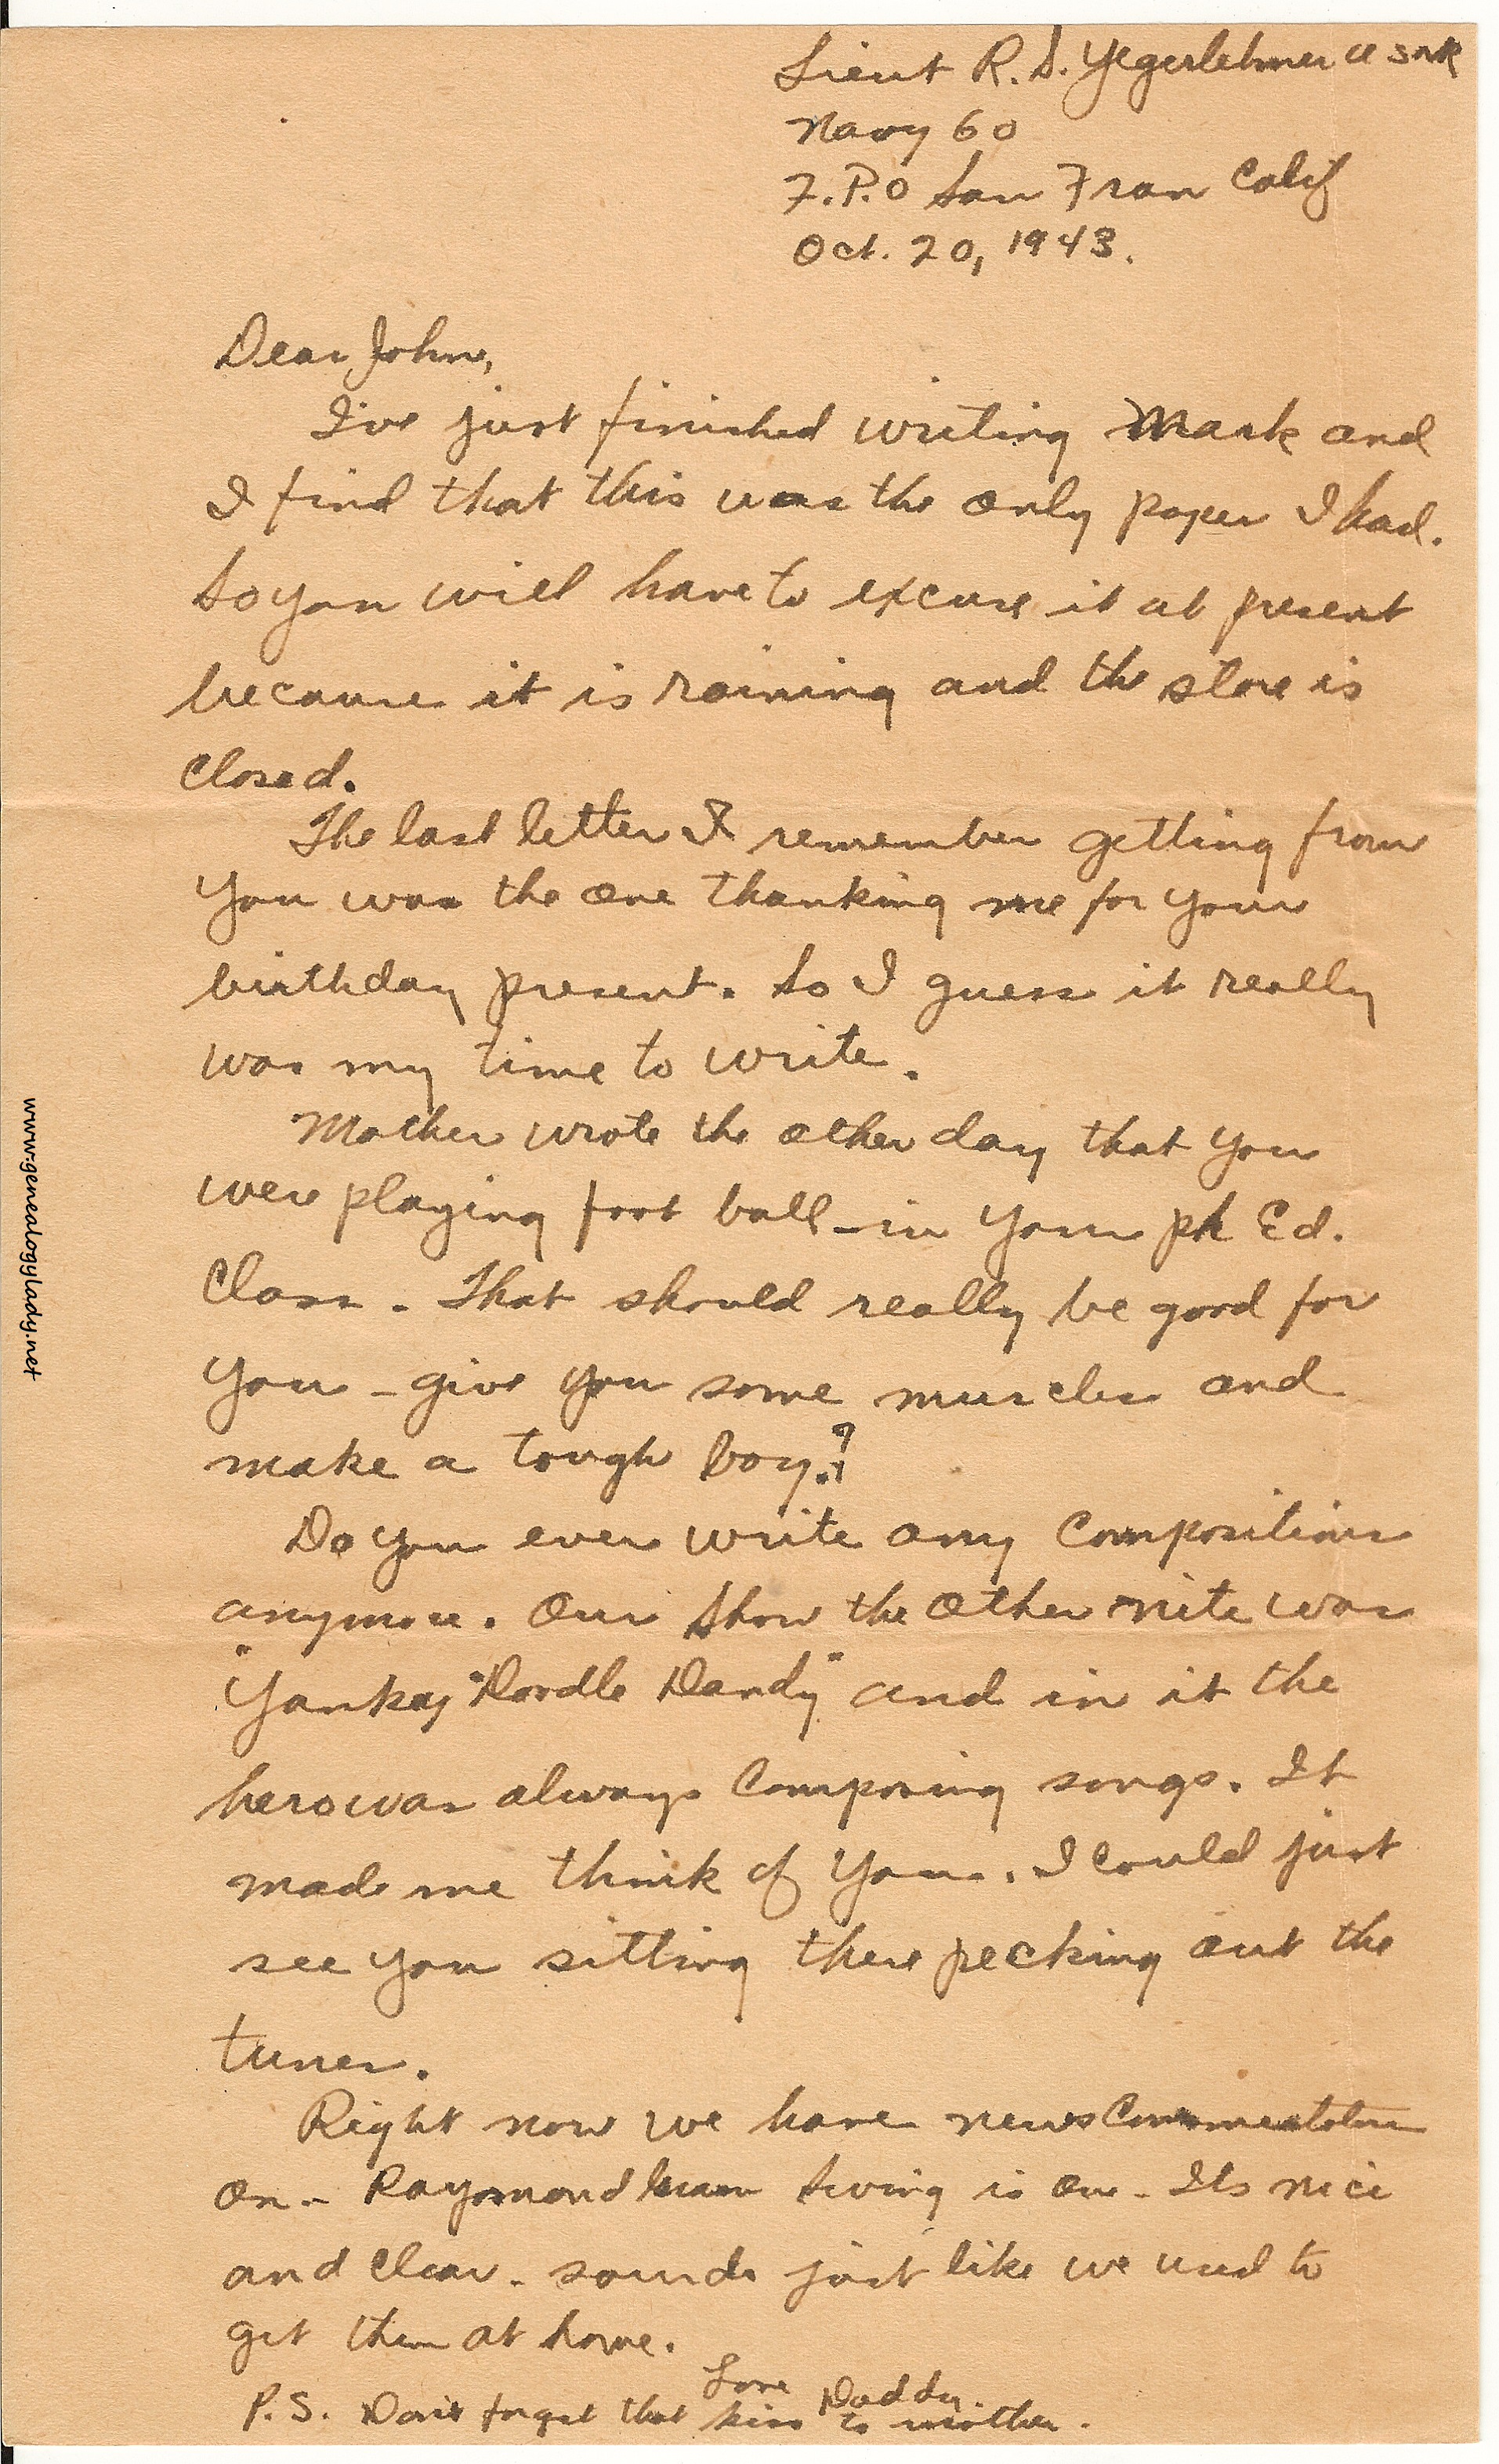 Lieut R. S. Yegerlehner USNR
Navy 60
F.P.O San Fran Calif
Oct. 20, 1943.
Dear John,
I've just finished writing Mark and
I find that this was the only paper I had.
So you will have to excuse it at present
because it is raining and the store is
closed.
The last letter I remember getting from
you was the one thanking me for your
birthday present. So I guess it really
was my time to write.
Mother wrote the other day that you
were playing foot ball - in your ph Ed.
Class. That should really be good for
you - give you some muscles and
make a tough boy.?
Do you ever write any compositions
anymore. Our show the other nite was
"Yankey "Doodle Dandy" and in it the
hero was always composing songs. It
made me think of you. I could just
see you sitting there pecking out the
tunes.
Right now we have news Commentators
on - Raymond Swing is one. Its nice
and clear. sounds just like we used to
get them at home.
Love Daddy.
P.S. Don't forget that kiss to mother.
www.genealogylady.net